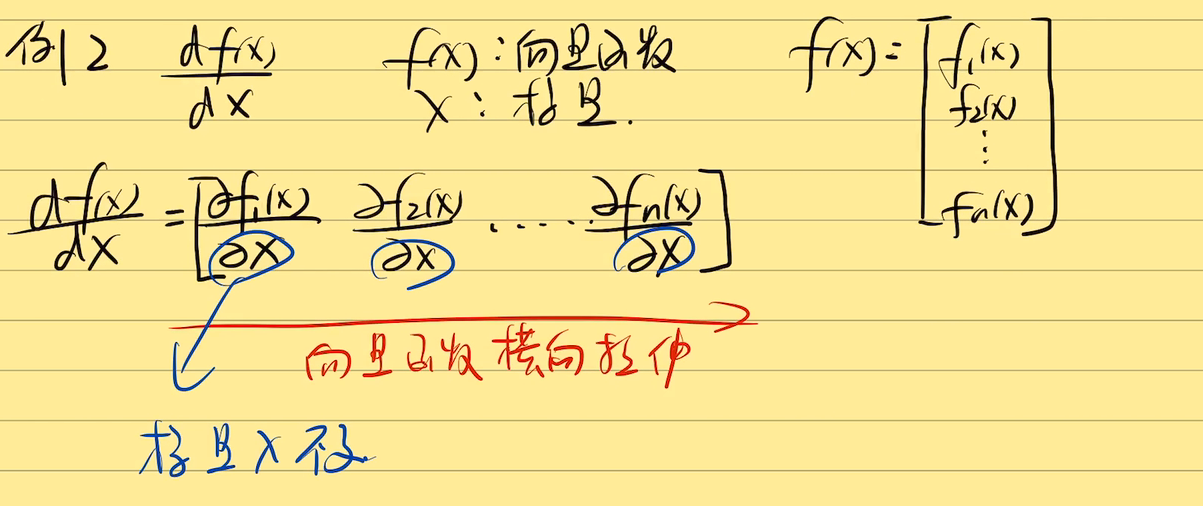 例2 df(x)/dx f(x):向量函数 f(x)=[f₁(x) f₂(x) ⋮ fₙ(x)]
x:标量.
df(x)/dx = [∂f₁(x)/∂x ∂f₂(x)/∂x ····· ∂fₙ(x)/∂x]
向量函数横向拉伸
标量x不变